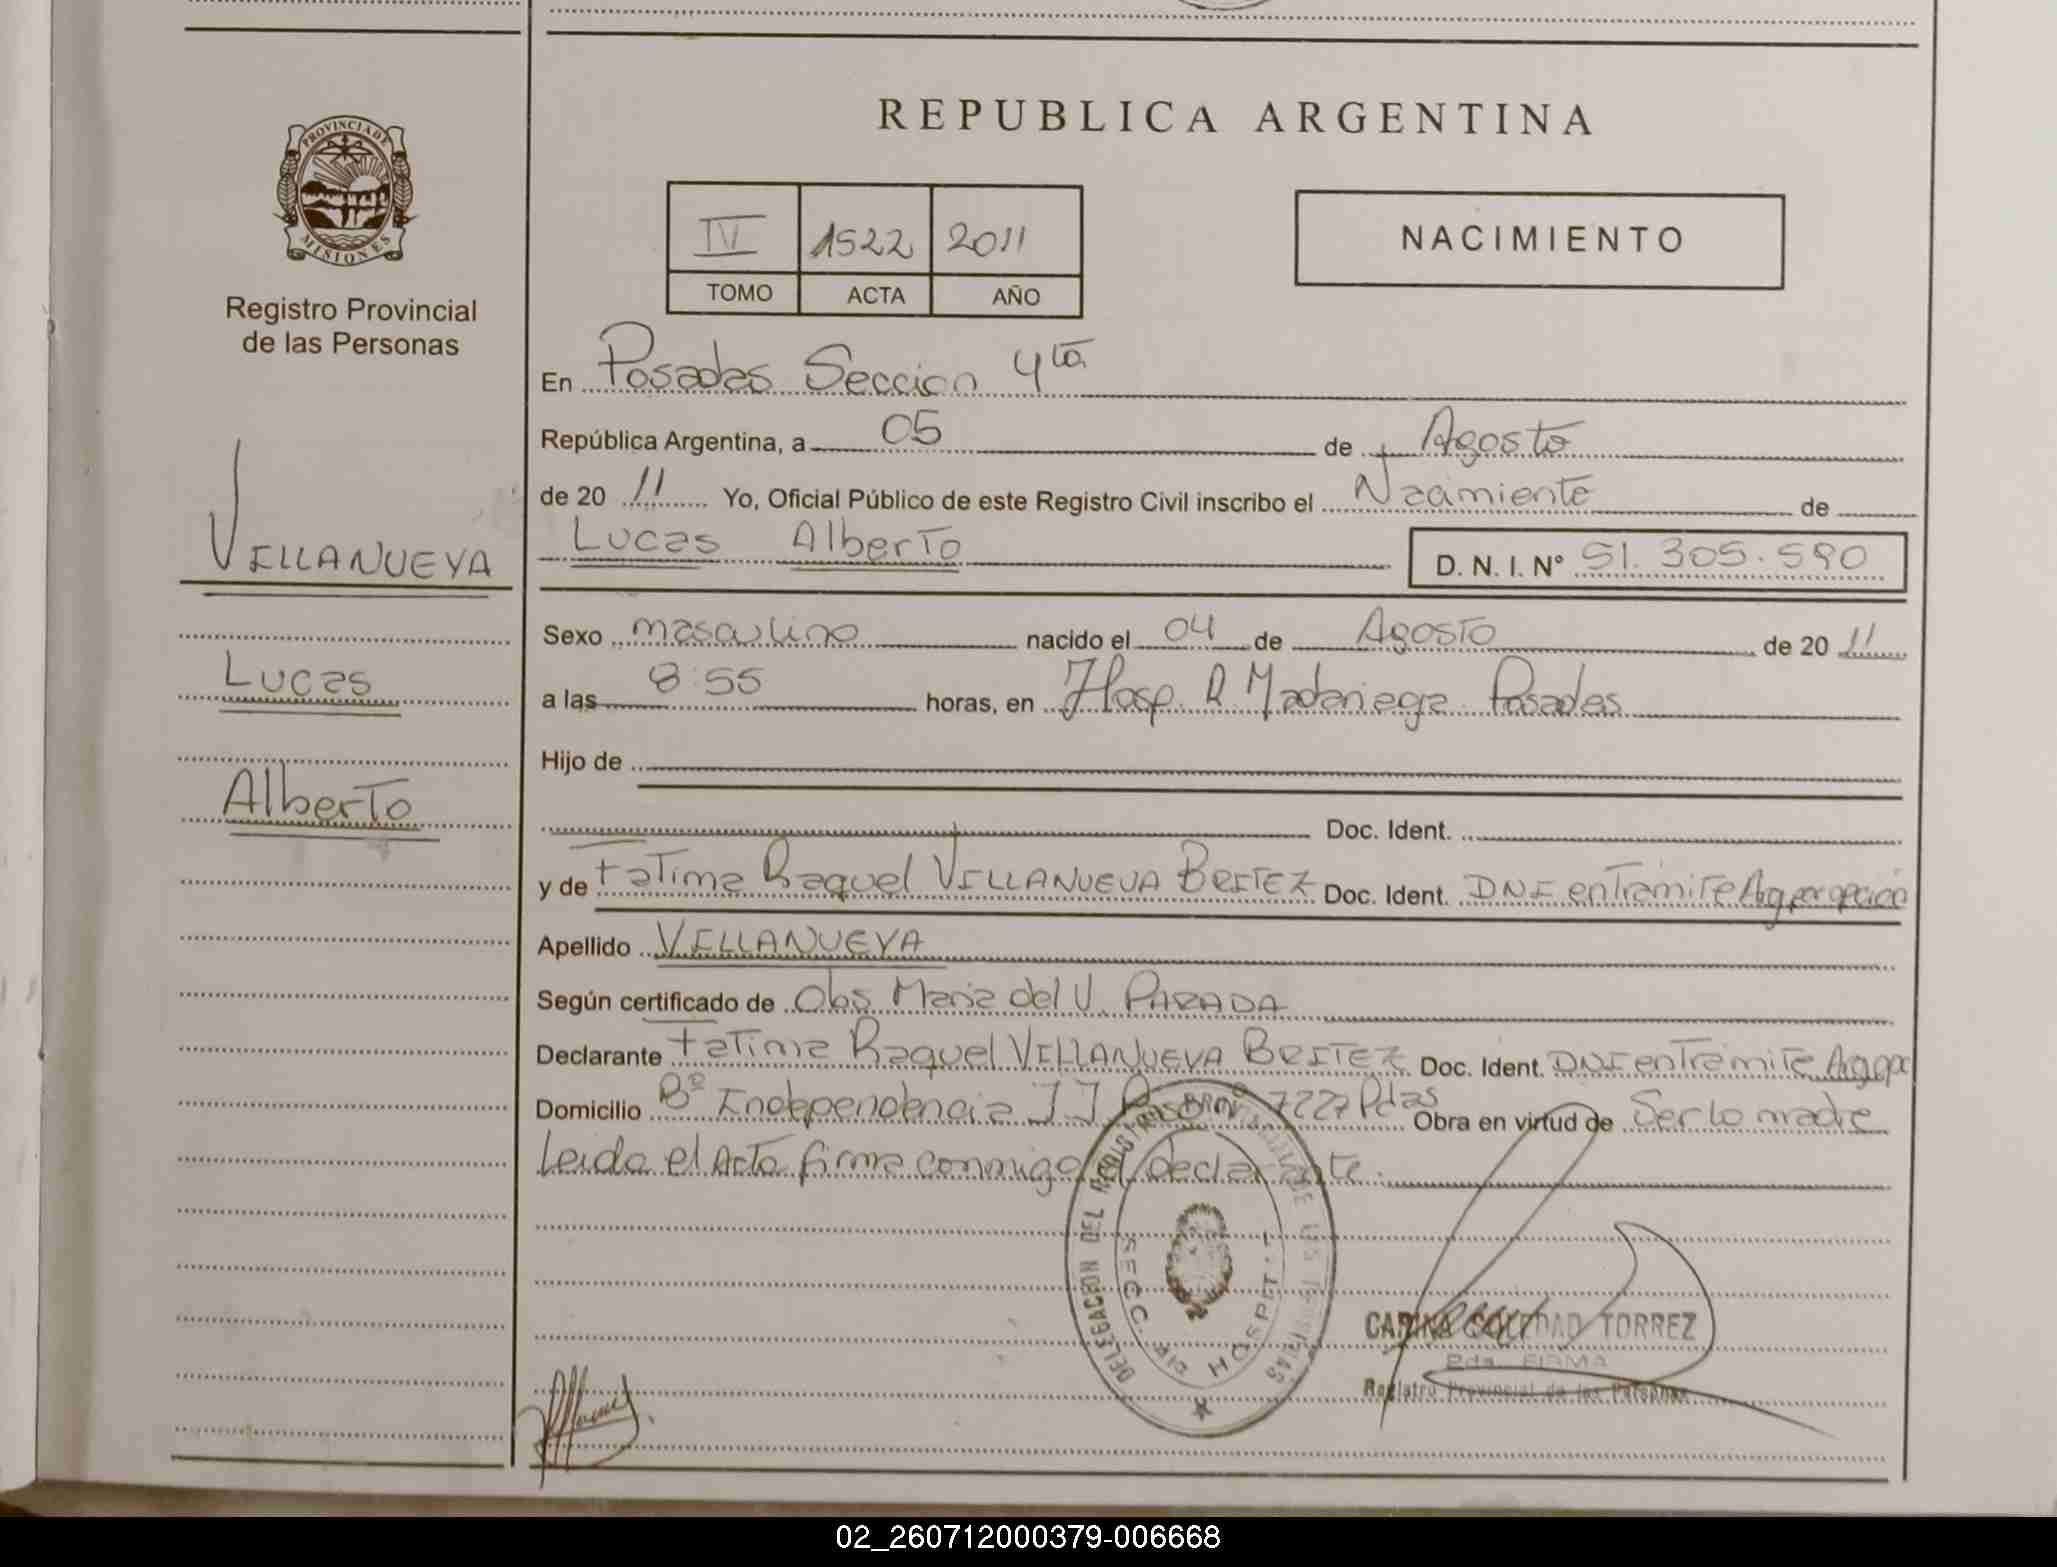 REPUBLICA ARGENTINA
PROVINCIA DE MISIONES
Registro Provincial
de las Personas
IV 1522 2011
TOMO ACTA AÑO
NACIMIENTO
En Posadas Seccion 4ta
República Argentina, a 05 de Agosto
de 20 11 Yo, Oficial Público de este Registro Civil inscribo el Nacimiento de
Lucas Alberto D. N. I. N° 51.305.590
VILLANUEVA
Lucas
Alberto
Sexo masculino nacido el 04 de Agosto de 20 11
a las 8:55 horas, en Hosp. R Madariaga Posadas
Hijo de
Doc. Ident.
y de Fatima Raquel VILLANUEVA BRITEZ Doc. Ident. DNI en Tramite Ag
Apellido VILLANUEVA
Según certificado de Obs Maria del V. PARADA
Declarante Fatima Raquel VILLANUEVA BRITEZ Doc. Ident. DNI en Tramite
Domicilio B° Independencia J J Paso N° 7227 Pdas Obra en virtud de Ser la madre
Leida el Acta firma conmigo el declarante.
DELEGACION DEL REGISTRO PROVINCIAL DE LAS PERSONAS
SECC. HOSPITAL
CARINA SOLEDAD TORREZ
2da. FIRMA
Registro Provincial de las Personas
02_260712000379-006668